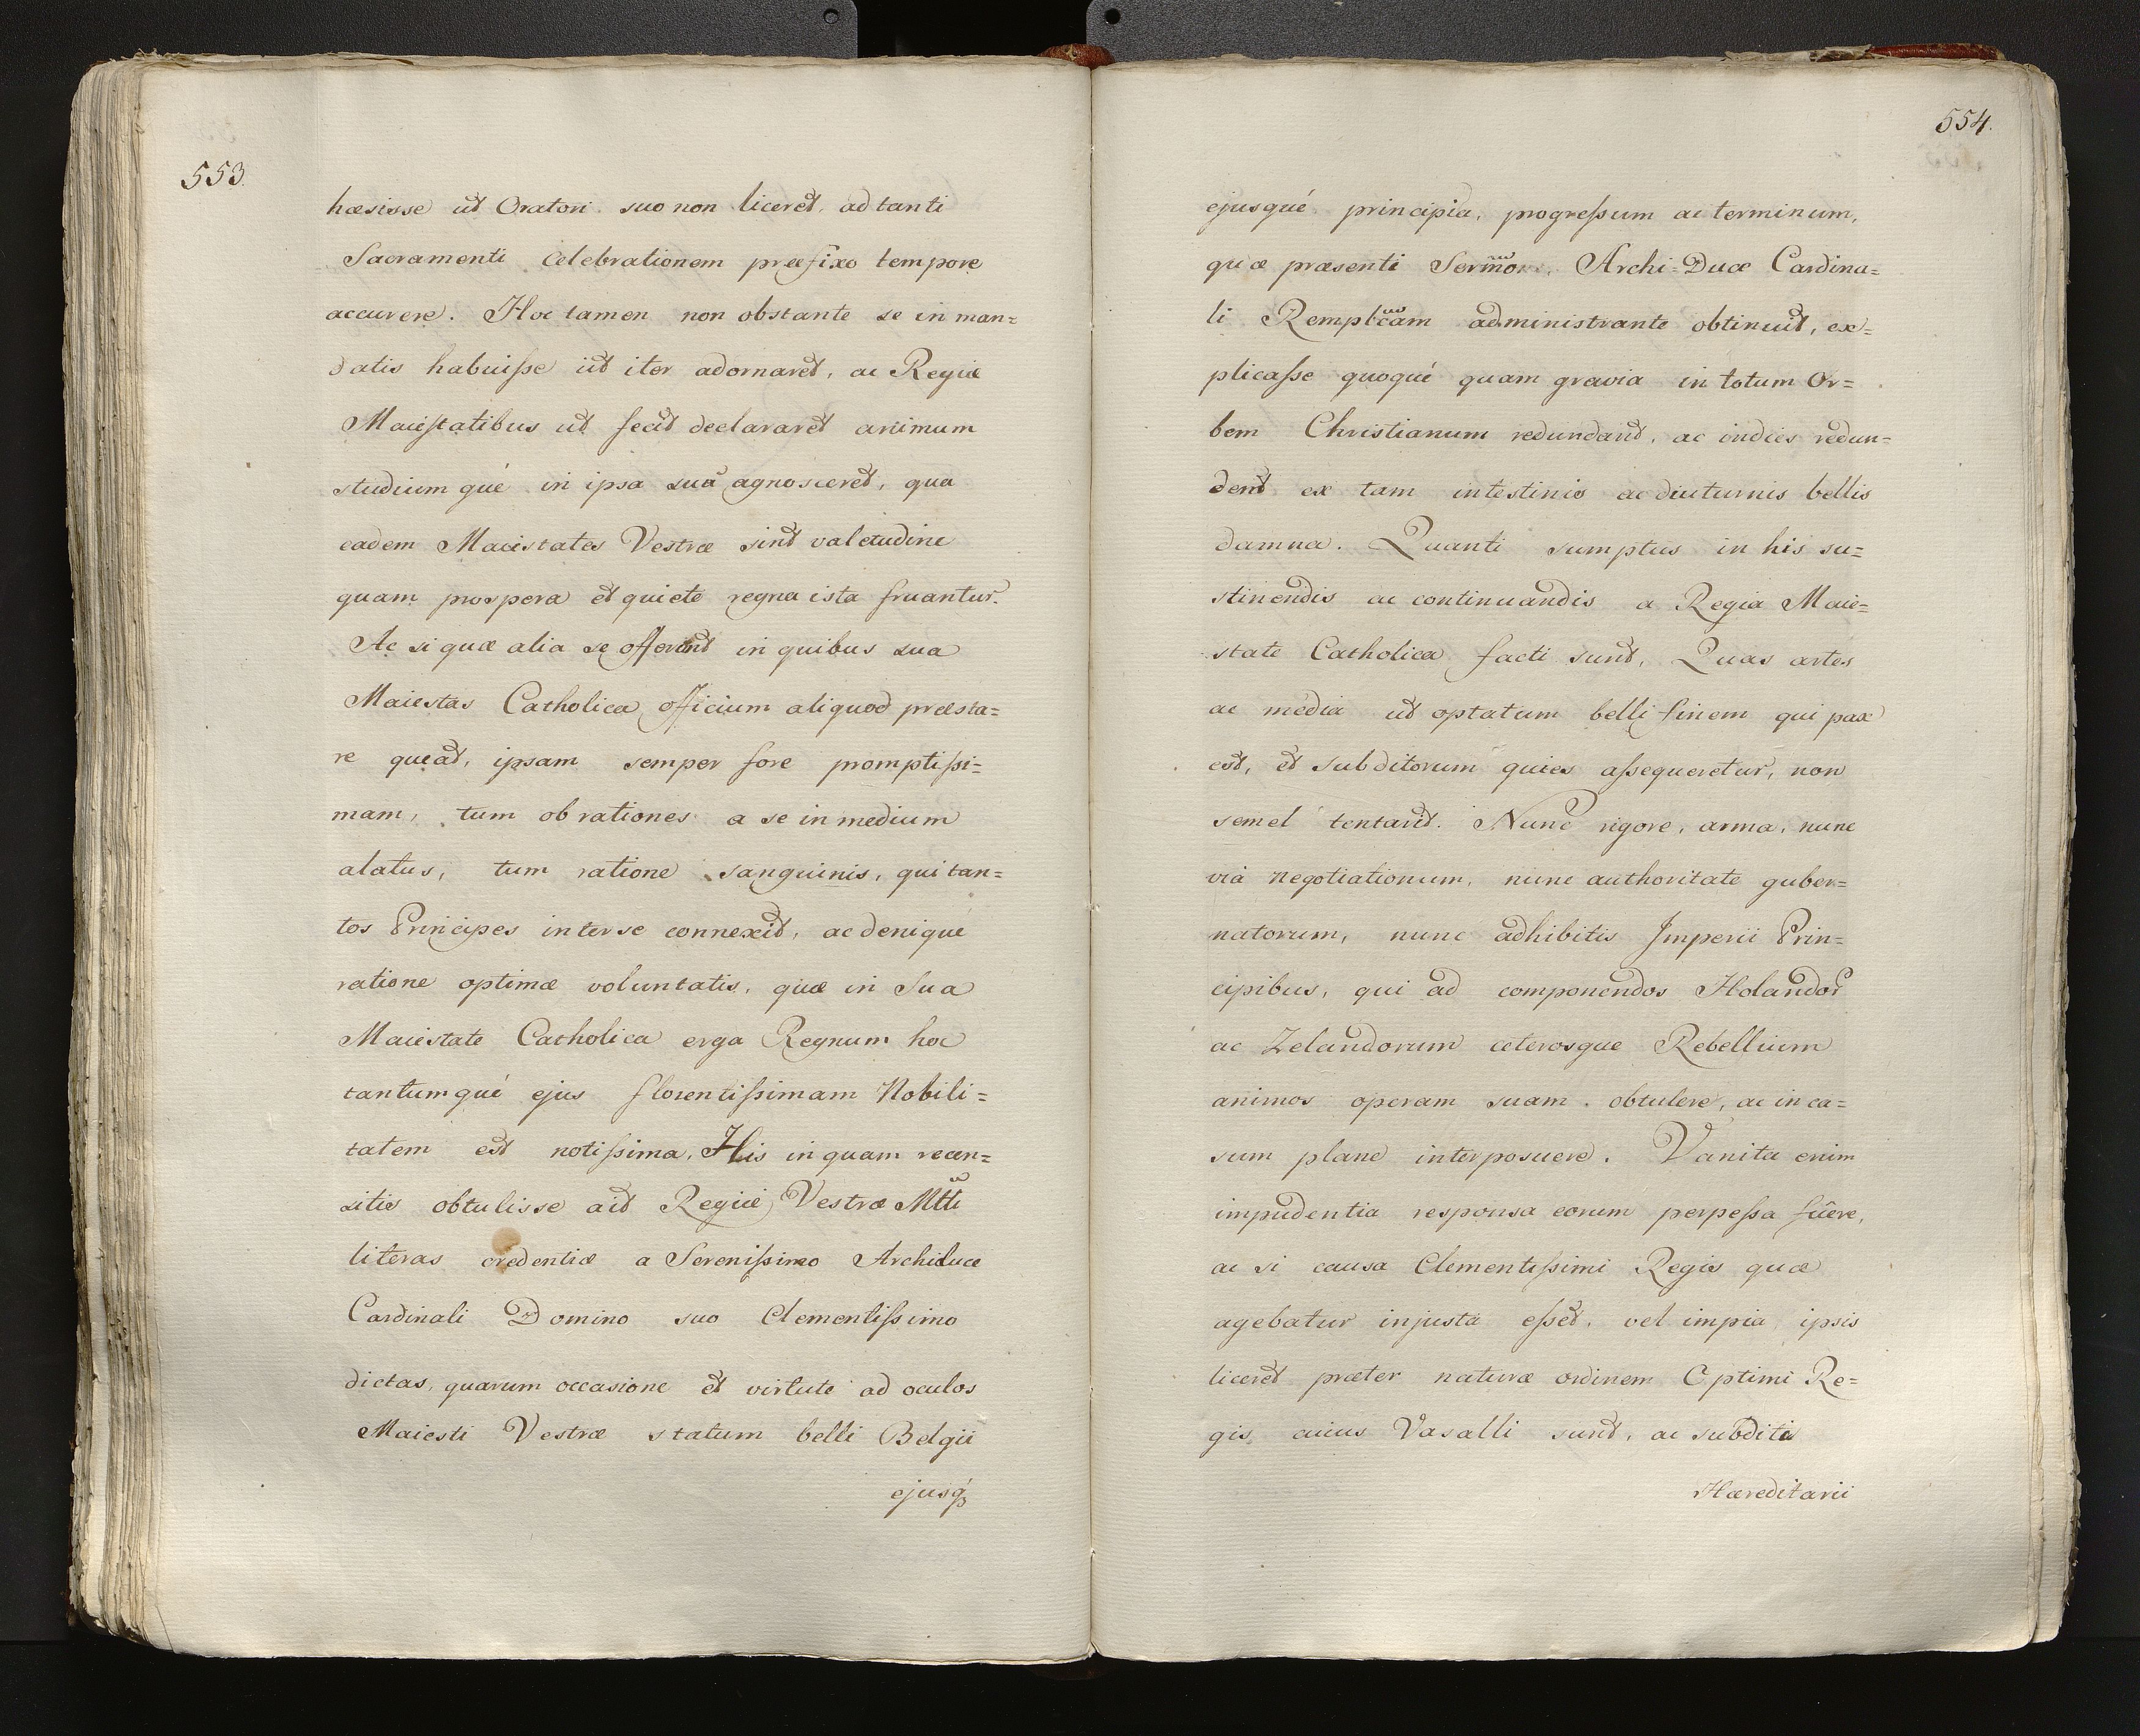 553.
hæsisse ut Oratori suo non liceret, ad tanti
Sacramenti celebrationem præfixo tempore
accurere. Hoc tamen non obstante se in man=
datis habuiſse ut iter adornaret, ac Regiæ
Maieſtatibus ut fecit declararet animum
studiumqué in ipsa suã agnosceret, qua
eadem Maiestates Vestræ sint valetudine
quam prospera et quiete regna ista fruantur.
Ac si quæ alia se offerant in quibus sua
Maiestas Catholica officium aliquod præsta=
re queat, ipsam semper fore promptiſsi=
mam, tum ob rationes a se in medium
alatus, tum ratione sanguinis, qui tan=
tos Principes inter se connexit, ac deniqué
ratione optimæ voluntatis, quæ in Sua
Maiestate Catholica erga Regnum hoc
tantumqué ejus florentiſsimam Nobili=
tatem est notiſsima. His inquam recen=
sitis obtulisse ait Regiæ Vestræ Mtti
literas credentiæ a Sereniſsimo Archiduce
Cardinali Domino suo Clementiſsimo
dictas, quarum occasione et virtute ad oculos
Maiesti Vestræ statum belli Belgii
ejusq́;
554.
ejusqué principia, progreſsum ac terminum,
quæ præsenti Sermõ Archi=Duce Cardina=
li Rempb̃cam administrante obtinuit, ex=
plicaſse quoqué quam gravia in totum Or=
bem Christianum redundant, ac indies redun=
dent ex tam intestinis ac diuturnis bellis
damna. Quanti sumptus in his su=
stinendis ac continuandis a Regia Maie=
state Catholica facti sunt, Quas artes
ac media ut optatum belli finem qui pax
est, et subditorum quies aſsequeretur, non
semel tentarit. Nunc rigore, arma, nunc
via negotiationum, nunc authoritate guber=
natorum, nunc adhibitis Imperii Prin=
cipibus, qui ad componendos Holandor
ac Zelandorum ceterosque Rebellium
animos operam suam obtulere, ac in ca=
sum plane interposuere. Vanita enim
impudentia responsa eorum perpeſsa fuere,
ac si causa Clementiſsimi Regis quæ
agebatur injusta eſset, vel impia ipsis
liceret præter naturæ ordinem Optimi Re=
gis cuius Vasalli sunt, ac subditi
Hæreditarii